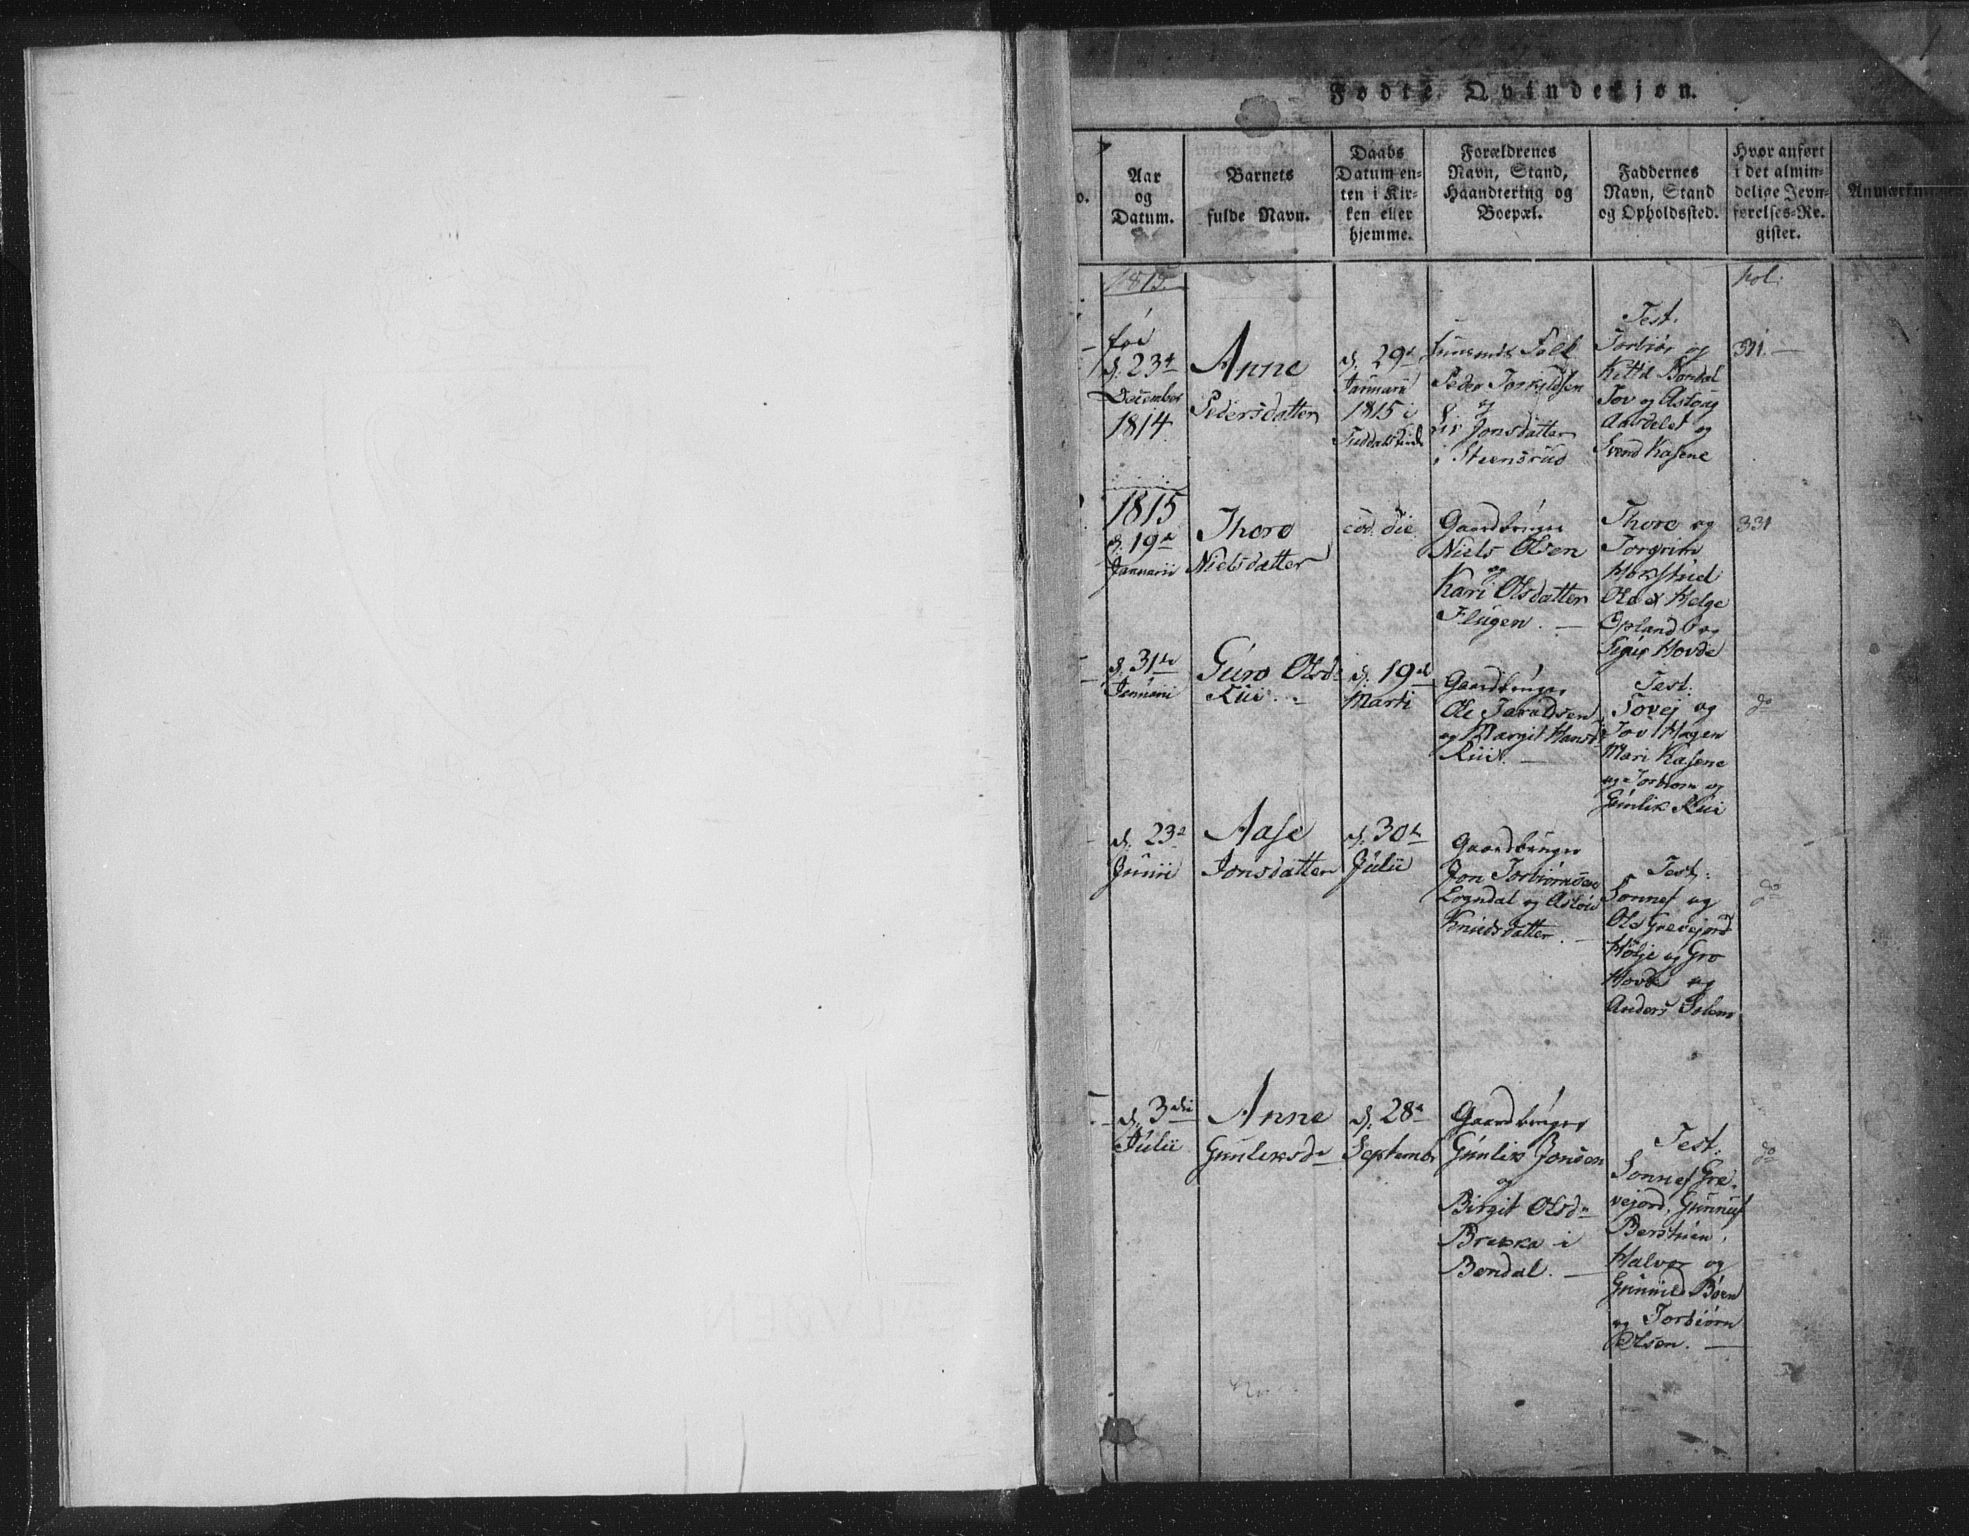 1
Fødte Qvindekjøn.
o.
Aar
og
Datum.
Barnets
fulde Navn.
Daabs
Datum en-
ten i Kir-
ken eller
hjemme.
Forældrenes
Navn, Stand,
Haandtering og
Boepæl.
Faddernes
Navn, Stand
og Opholdssted.
Hvor anført
i det almin-
delige Jevn-
førelses-Re-
gister.
1815.
d. 23d
December
1814.
Anne
Pedersdatter
d. 29d
Januarii
1815 i
Folk
Peder Torkildsen
og
Liv Jonsdatter
i Steensrud
Test.
Torbiør og
Kittil Bondal
Tov og Aslaug
Aasdelet og
Svend Kasene
fol.
331.
1815
d. 19d
Januarii
Thoro
Nielsdatter
eod. die
Gaardbruger
Niels Olsen
og
Kari Olsdatter
Flugen.
Thore og
Torgrim
Hoxstuel
Ole & Helge
Opland og
Hovde
331
d. 31te
Januarii
Guro Olsd.
Rui.
d. 19d
Marti
Gaardbruger
Ole Taraldsen
og Margit Hansd.
Rui.
Test.
Tovej og
Tov Hagen
Mari Kasene
og Torbiorn og
Gunlik Rui
do
d. 23d
Junii
Aase
Jonsdatter
d. 30d
Julii
Gaardbruger
Jon Torbiørnsen
Logndal og Asloug
Knudsdatter.
Test.
Sonnef og
Ole Grevejord
Hølje og Gro
Hovde og
Anders Solem
do
d. 3die
Julii
Anne
Gunleksdr
d. 28d
September
Gaardbruger
Gunlik Jonsen
og
Birgit Olsdr
Brekka i
Bondal.
Test.
Sonnef Gre-
vejord, Gunnuf
Berstuen,
Halvor og
Gunnild Bøen
og Torbiørn
Olsen.
do